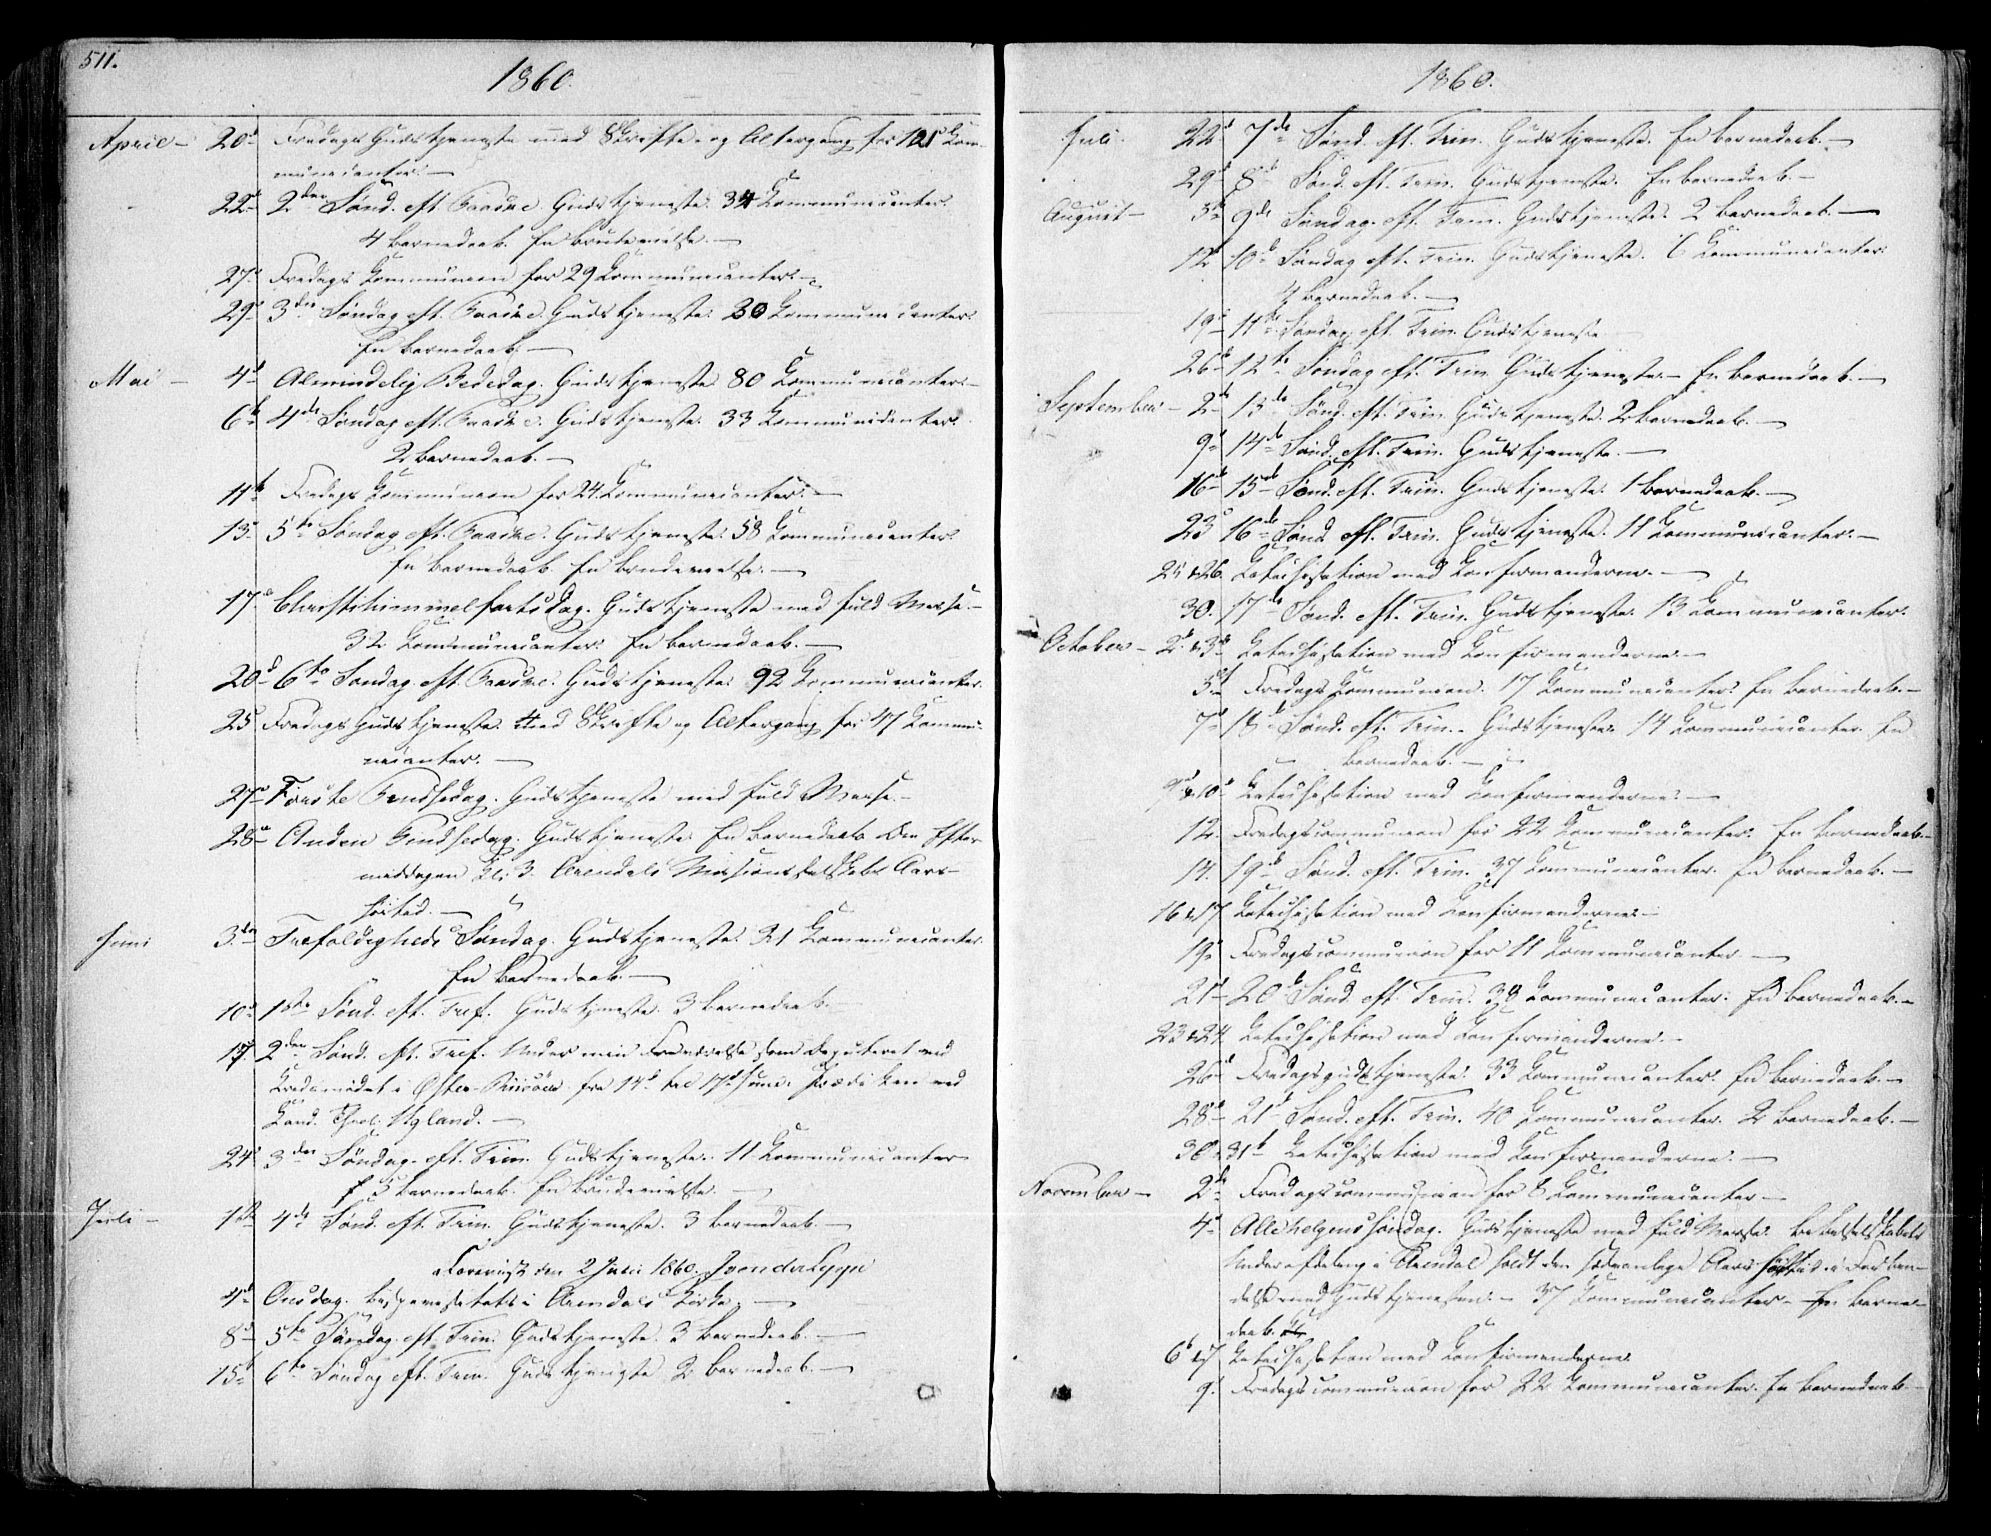 511.
1860.
April – 20d Fredags Gudstjeneste med Skrifte- og Altergang for 121 Kom-
municanter. –
22d 2den Sønd. eft. Paaske. Gudstjeneste. 34 Kommunicanter.
4 Barnedaab. En Brudevielse. –
27d Fredags Kommunion for 29 Kommunicanter. –
29d 3die Søndag eft. Paaske. Gudstjeneste. 30 Kommunicanter.
En Barnedaab. –
Mai – 4d Almindelig Bededag. Gudstjeneste 80 Kommunicanter. –
6te 4de Søndag eft. Paaske. Gudstjeneste. 33 Kommunicanter.
2 Barnedaab. –
11te Fredags Kommunion for 24 Kommunicanter. –
13. 5te Søndag eft. Paaske. Gudstjeneste. 58 Kommunicanter.
En Barnedaab. En Brudevielse. –
17d Christihimmelfartsdag. Gudstjeneste med fuld Messe. –
32 Kommunicanter. En Barnedaab. –
20d 6te Søndag eft. Paaske. Gudstjeneste. 92 Kommunicanter.
25 Fredags Gudstjeneste med Skrifte og Altergang for 47 Kommu-
nicanter. –
27d Første Pindsedag. Gudstjeneste med fuld Messe. –
28d Anden Pindsedag. Gudstjeneste. En Barnedaab. Om Efter-
middagen Kl. 3 Arendals Missionsselskabs Aars-
høitid. –
Juni 3die Trefoldigheds Søndag. Gudstjeneste. 21 Kommunicanter.
En Barnedaab. –
10d 1ste Sønd. eft. Tref. Gudstjeneste. 3 Barnedaab.
17. 2den Sønd. eft. Tref. Under min Fraværelse som Deputeret ved
Kredsmødet i Øster-Riisøer fra 14d til 17d Juni. Prædiken ved
Kand. Theol. Ugland. –
24d 3die Søndag eft. Trin. Gudstjeneste. 11 Kommunicanter
5 Barnedaab. En Brudevielse. –
Juli – 1ste 4de Sønd. eft. Trin. Gudstjeneste. 3 Barnedaab. –
Foreviist den 2 Juli 1860.
4d Onsdag. Bispevisitats i Arendals Kirke. –
8d 5te Søndag eft. Trin. Gudstjeneste. 3 Barnedaab. –
15d 6te Søndag eft. Trin. Gudstjeneste 2 Barnedaab. –
1860.
Juli. 22d 7de Sønd. eft. Trin. Gudstjeneste. En Barnedaab. –
29d 8d Sønd. eft. Trin. Gudstjeneste. En Barnedaab. –
August – 5te 9de Søndag eft. Trin. Gudstjeneste. 2 Barnedaab. –
12 10d Søndag eft. Trin. Gudstjeneste. 6 Kommunicanter.
4 Barnedaab. –
19d 11te Søndag eft. Trin. Gudstjeneste –
26d 12te Søndag eft. Trin Gudstjeneste. – En Barnedaab. –
September – 2d 13de Sønd. eft. Trin. Gudstjeneste. 2 Barnedaab. –
9d 14de Sønd. eft. Trin. Gudstjeneste. –
16d 15de Sønd. eft. Trin. Gudstjeneste. 1 Barnedaab. –
23d 16de Sønd. eft. Trin. Gudstjeneste. 11 Kommunicanter. –
25 & 26. Katechisation med Konfirmanderne. –
30. 17de Sønd. eft. Trin. Gudstjeneste. 13 Kommunicanter.
October – 2d & 3d Katechisation med Konfirmanderne. –
5te Fredags Kommunion. 17 Kommunicanter. En Barnedaab. –
7d 18d Sønd. eft. Trin. – Gudstjeneste. 14 Kommunicanter. En
Barnedaab. –
9d & 10d Katechisation med Konfirmanderne. –
12. Fredagscommunion for 22 Kommunicanter. En Barnedaab. –
14. 19d Sønd. eft. Trin. 37 Kommunicanter. En Barnedaab. –
16 & 17 Katechisation med Konfirmanderne. –
19d Fredagscommunion for 11 Kommunicanter –
21d 20d Sønd. eft. Trin. 38 Kommunicanter. En Barnedaab. –
23 & 24. Katechisation med Konfirmanderne. –
26d Fredagsgudstjeneste. 33 Kommunicanter. En Barnedaab. –
28d 21d Sønd. eft. Trin. 40 Kommunicanter. 2 Barnedaab. –
30 & 31te Katechisation med Konfirmanderne. –
November – 2d Fredagscommunion for 8 Kommunicanter –
4d Allehelgens Søndag. Gudstjeneste med fuld Messe. Bibelselskabets
Underafdeling i Arendal holdt den sædvanlige Aarshøitid i Forbin-
delse med Gudstjenesten. – 37 Kommunicanter – En Barne-
daab.
6 & 7 Katechisation med Konfirmanderne.
9. Fredagscommunion for 22 Kommunicanter. En Barnedaab. –